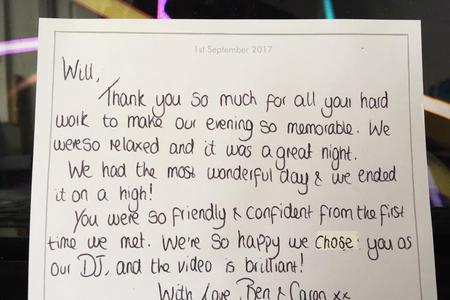 1st September 2017
Will,
Thank you so much for all your hard
work to make our evening so memorable. We
were so relaxed and it was a great night.
We had the most wonderful day & we ended
it on a high!
You were so friendly & confident from the first
time we met. We're so happy we chose you as
our DJ, and the video is brilliant!
With love, Ben & Caron xx